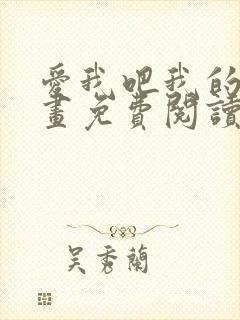 愛我吧我的
畫免費閱讀
吳秀蘭